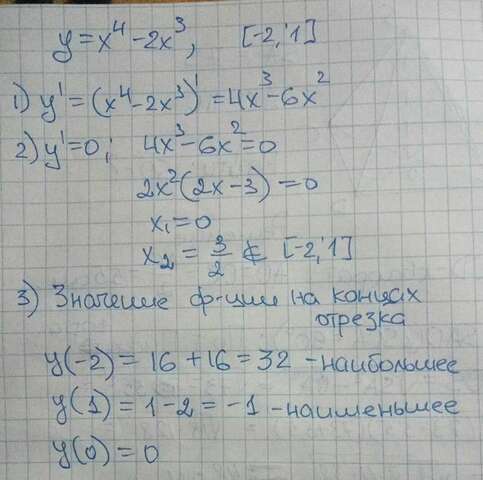 y = x⁴ - 2x³, [-2; 1]
1) y' = (x⁴ - 2x³)' = 4x³ - 6x²
2) y' = 0; 4x³ - 6x² = 0
2x²(2x - 3) = 0
x₁ = 0
x₂ = 3/2 ∉ [-2; 1]
3) Значение ф-ции на концах
отрезка
y(-2) = 16 + 16 = 32 - наибольшее
y(1) = 1 - 2 = -1 - наименьшее
y(0) = 0